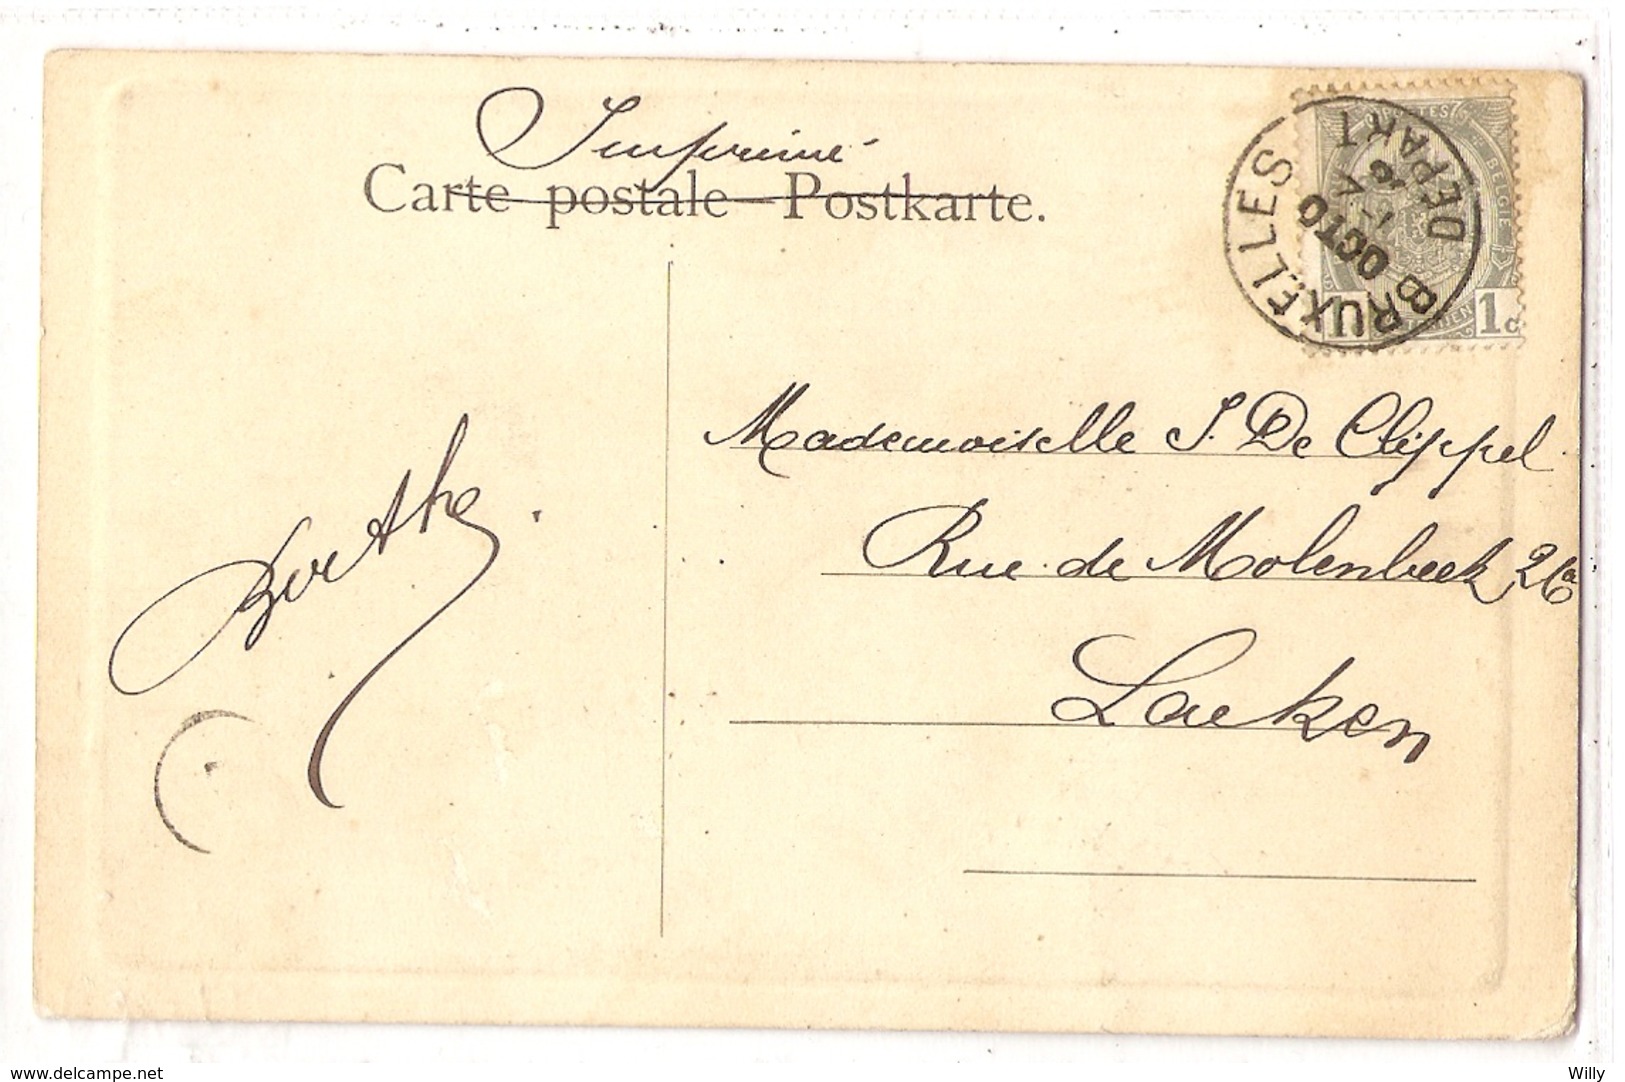 Imprimé
Carte postale – Postkarte.
BRUXELLES
8 OCTO
DEPART
BELGIE
1c
Mademoiselle J. De Clippel
Rue de Molenbeek 26a
Laeken
Berthe.
www.delcampe.net
Willy